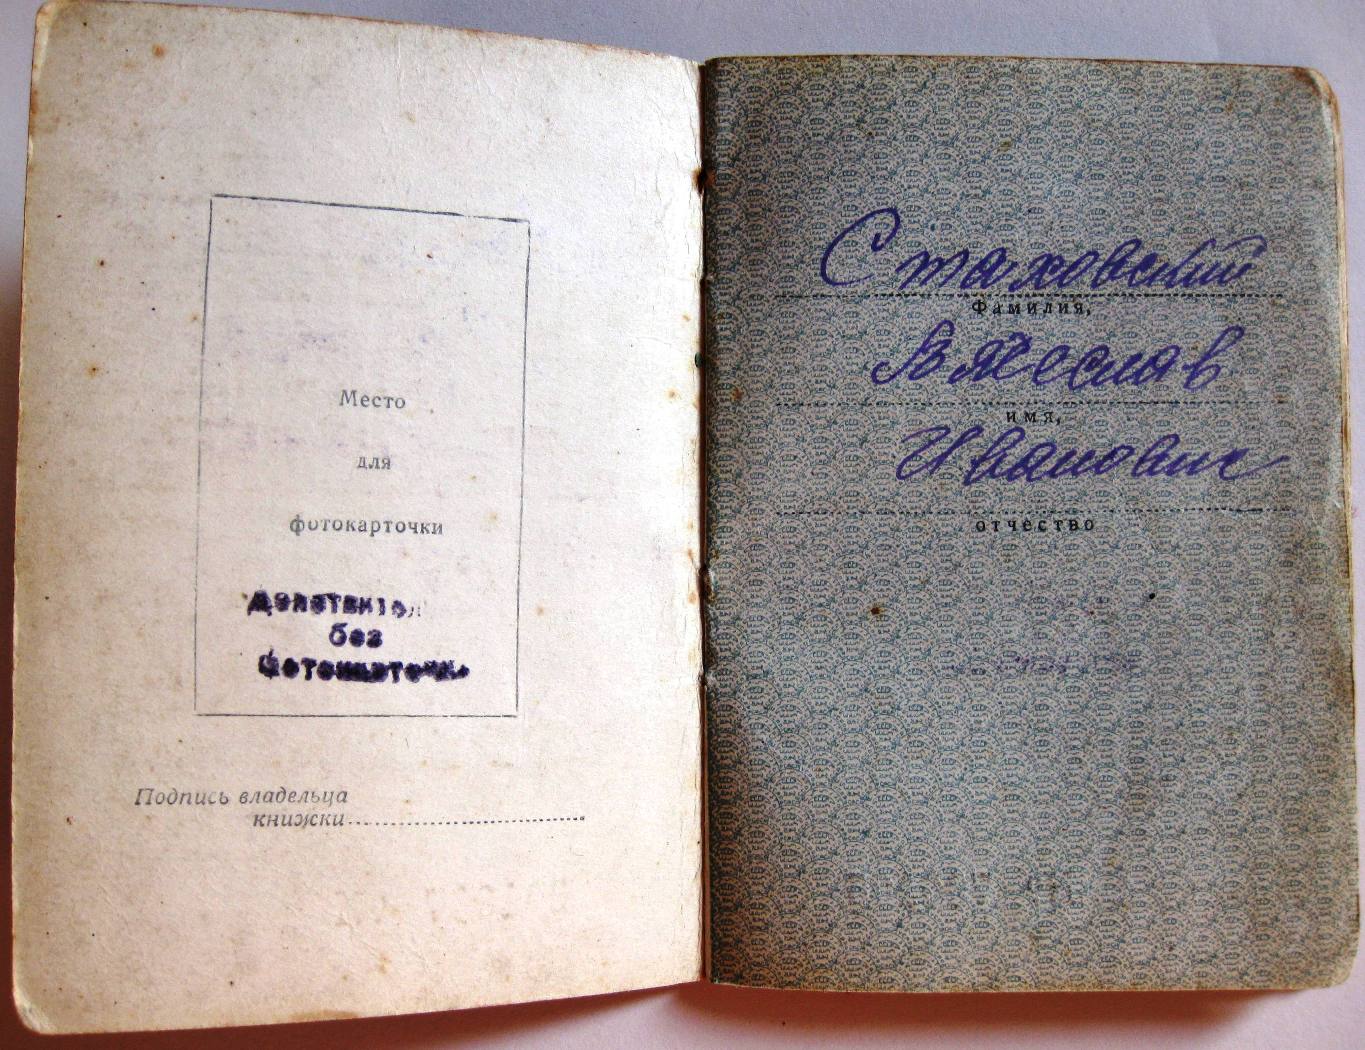 Место
для
фотокарточки
Действител
без
фотокарточк
Подпись владельца
книжки
Стаховский
Фамилия,
Вячеслав
имя,
Иванович
отчество